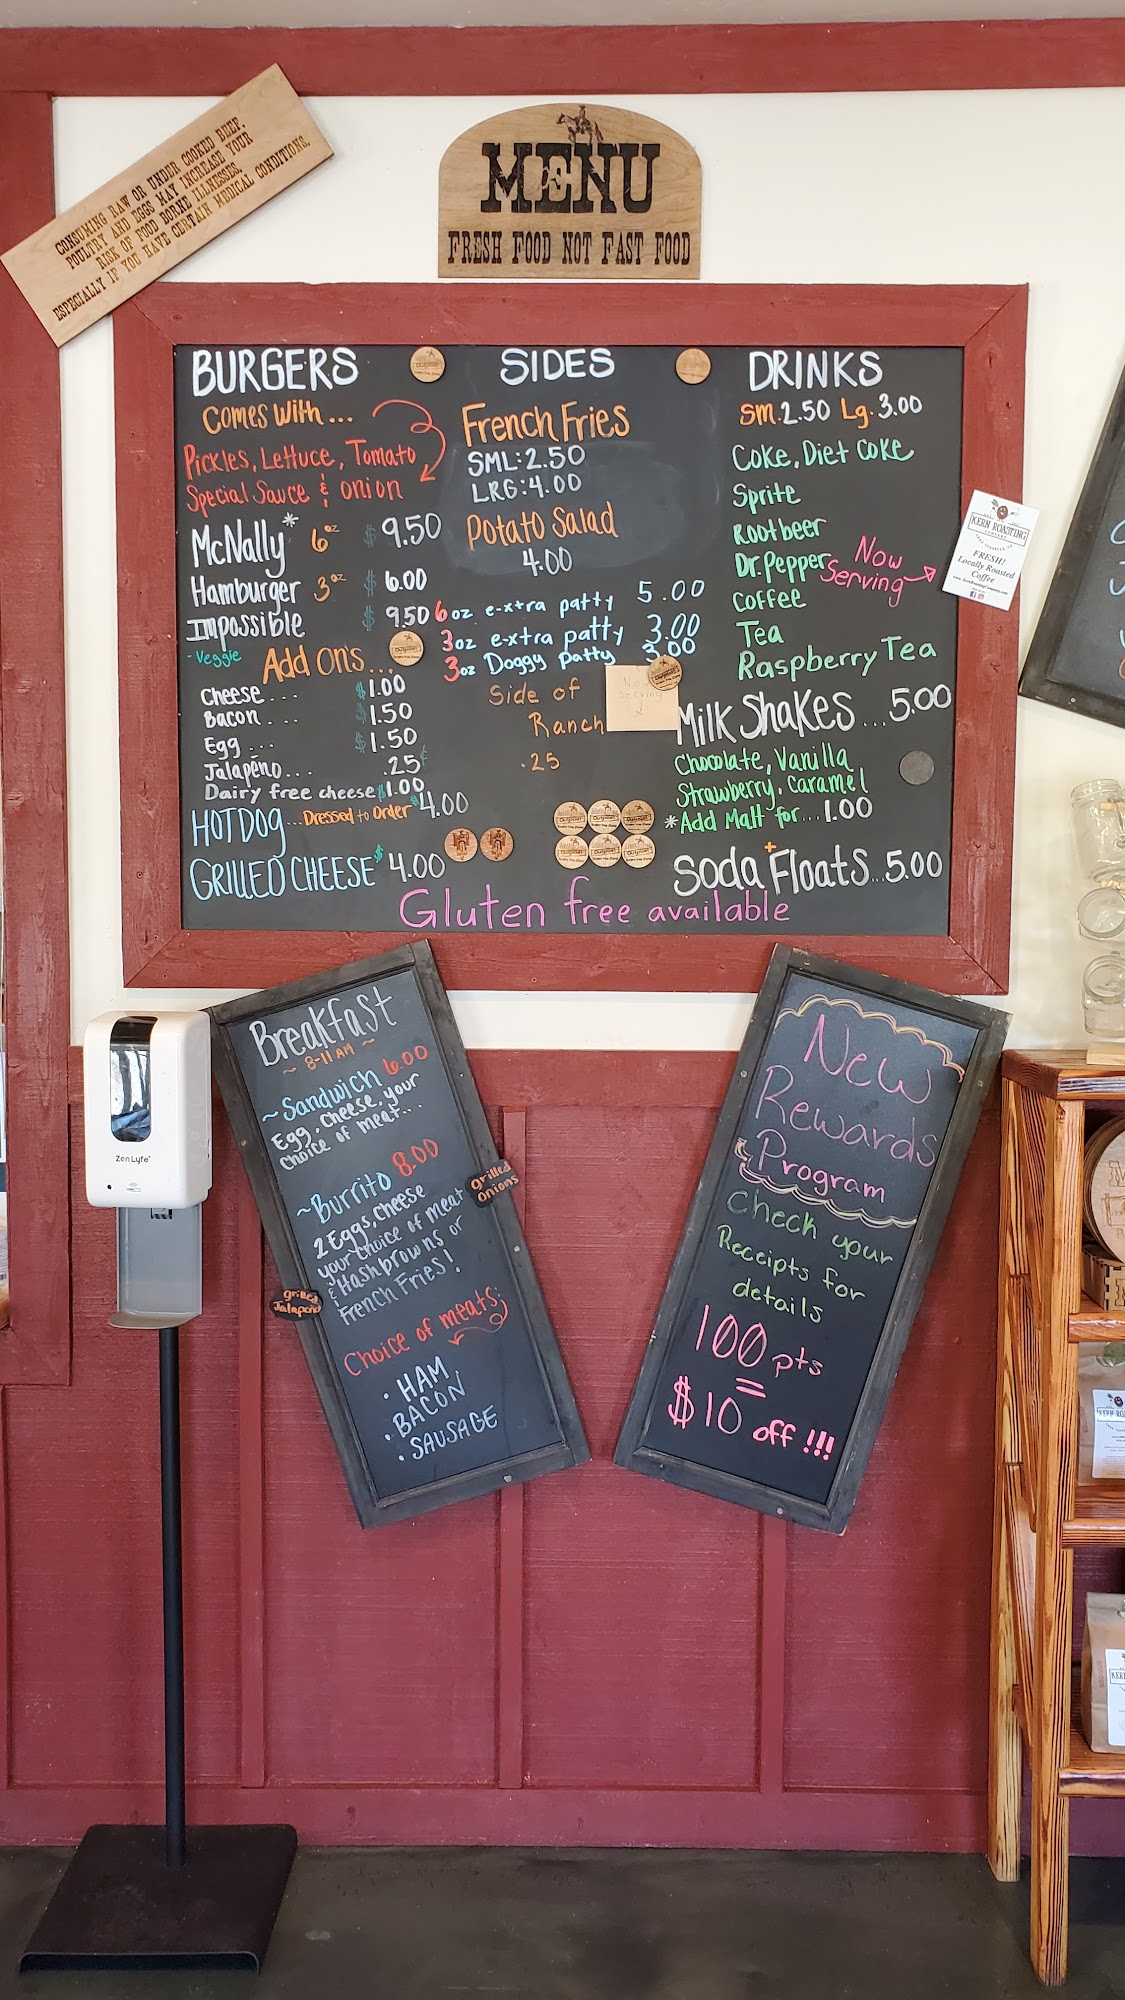 CONSUMING RAW OR UNDER COOKED BEEF,
POULTRY AND EGGS MAY INCREASE YOUR
RISK OF FOOD BORNE ILLNESSES,
ESPECIALLY IF YOU HAVE CERTAIN MEDICAL CONDITIONS.
MENU
FRESH FOOD NOT FAST FOOD
BURGERS
Comes with...
Pickles, Lettuce, Tomato
Special Sauce & onion
McNally* 6oz $9.50
Hamburger 3oz $6.00
Impossible $9.50
- Veggie
Add On's...
Cheese.... $1.00
Bacon.... $1.50
Egg... $1.50
Jalapeño... .25¢
Dairy free cheese $1.00
HOTDOG...Dressed to Order $4.00
GRILLED CHEESE $4.00
SIDES
French Fries
SML: 2.50
LRG: 4.00
Potato Salad
4.00
6oz e-xtra patty 5.00
3oz e-xtra patty 3.00
3oz Doggy patty 3.00
Side of
Ranch
.25
Now
Serving
DRINKS
Sm. 2.50 Lg. 3.00
Coke, Diet Coke
Sprite
Rootbeer
Dr. Pepper
Coffee
Tea
Raspberry Tea
Now
Serving
KERN ROASTING
COMPANY
FRESH!
Locally Roasted
Coffee
Milk Shakes...5.00
Chocolate, Vanilla
Strawberry, Caramel
*Add Malt for...1.00
Soda + Floats...5.00
Gluten free available
Breakfast
~ 8-11 AM ~
~Sandwich 6.00
Egg, cheese, your
choice of meat....
~Burrito 8.00
2 Eggs, Cheese
your choice of meat
& Hashbrowns or
French Fries!
grilled
onions
grilled
Jalapeño
Choice of meats:
• HAM
• BACON
• SAUSAGE
New
Rewards
Program
Check your
Receipts for
details
100 pts
=
$10 off !!!
Zen Lyfe